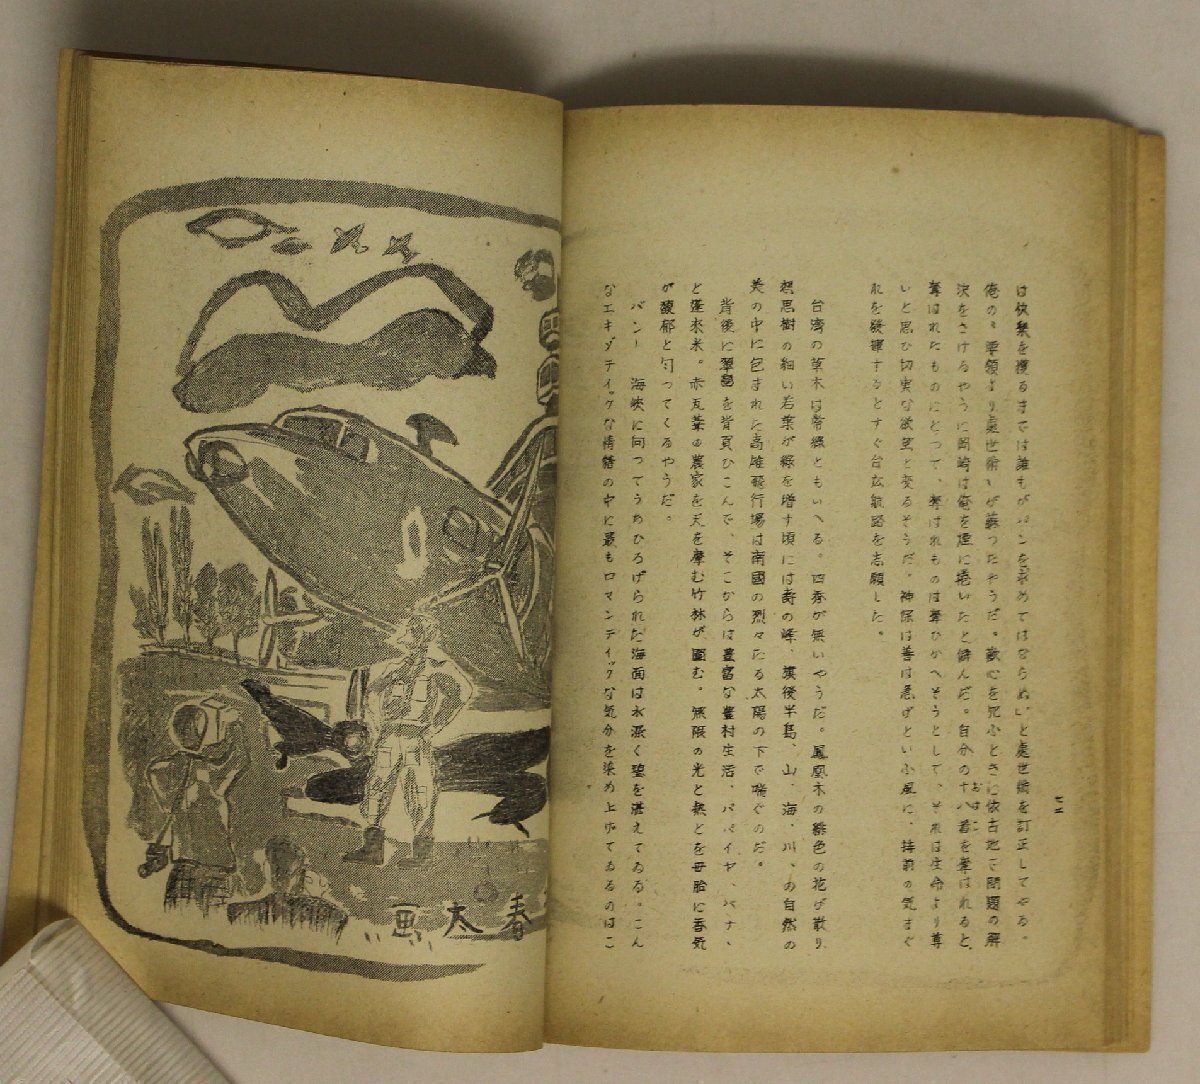 は快禦を獲るまでは誰もがパンを求めてはならぬ」と處世術を訂正してやる。
俺の『要領より處世術』が蘇つたやうだ。歓心を死ぶときに依古地で問題の解
決をさけるやうに岡崎は俺を煙に捲いたと睨んだ。自分の十八番を奪はれると、
おはこ
奪はれたものにとつて、奪はれものは奪ひかへそうとして、それは生命より尊
いと思ひ切実な欲望と変るそうだ。神保は善は急げといふ風に、持前の気まぐ
れを發揮するとすぐ台広航路を志願した。
台湾の草木は常緑ともいへる。四季が無いやうだ。鳳凰木の緋色の花が散り
想思樹の細い若葉が緑を増す頃には壽の峰、旗後半島、山、海、川、の自然の
美の中に包まれた高雄飛行場は南國の烈々たる太陽の下で喘ぐのだ。
背後に翠巒を背負ひこんで、そこからは豊富な農村生活、パパイヤ、バナヽ
と蓬萊米。赤瓦葉の農家を天を摩む竹林が圍む。無限の光と熱とを母胎に香気
が馥郁と匂つてくるやうだ。
バシー海峡に向つてうちひろげられた海面は水漲く碧を湛えてゐる。こん
なエキゾテイツクな情緒の中に最もロマンテイツクな気分を染め上げてゐるのはこ
七二
春太画